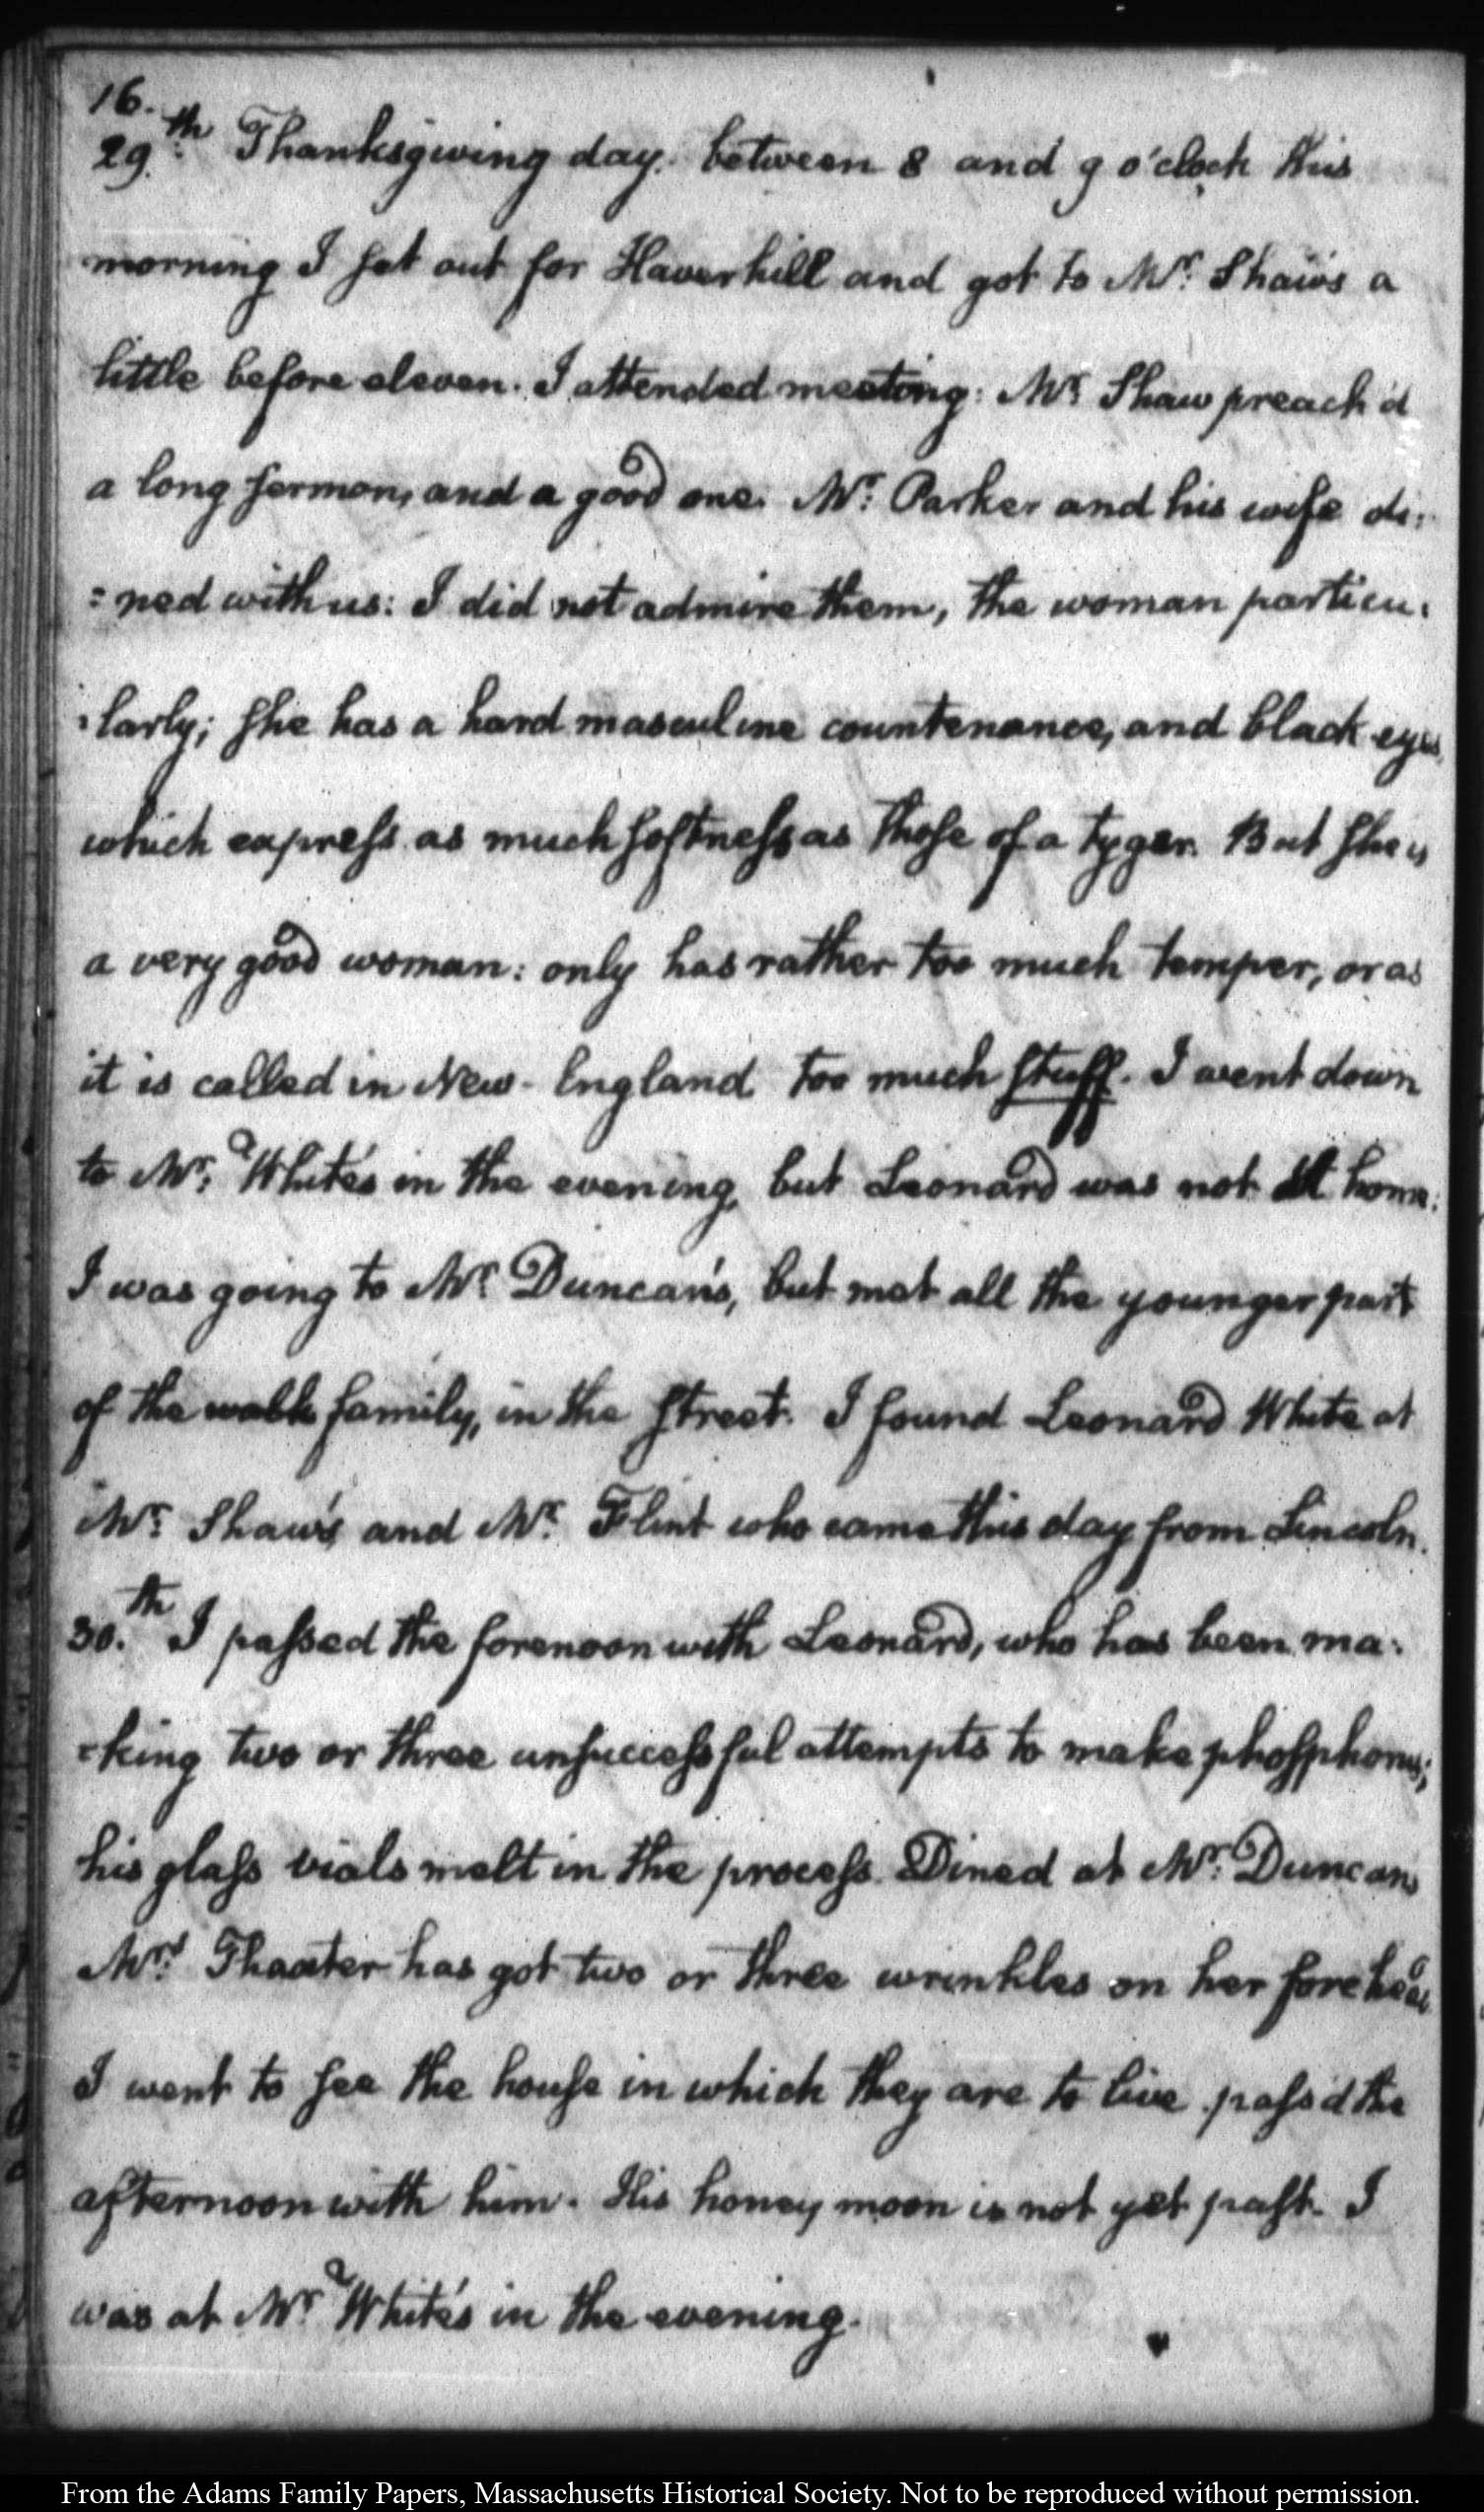 16.
29.th Thanksgiving day. between 8 and 9 o'clock this
morning I set out for Haverhill and got to Mr. Shaw's a
little before eleven. I attended meeting: Mr. Shaw preach'd
a long sermon, and a good one. Mr. Parker and his wife di:
:ned with us: I did not admire them, the woman particu:
:larly; she has a hard masculine countenance, and black eyes
which express as much softness as those of a tyger. But she is
a very good woman: only has rather too much temper, or as
it is called in New-England too much stuff. I went down
to Mr. White's in the evening, but Leonard was not at home.
I was going to Mr. Duncan's, but met all the younger part
of the family, in the street. I found Leonard White at
Mr. Shaw's, and Mr. Flint who came this day from Lincoln.
30.th I passed the forenoon with Leonard, who has been ma:
:king two or three unsuccessful attempts to make phosphorus;
his glass vials melt in the process. Dined at Mr. Duncans
Mrs. Thaxter has got two or three wrinkles on her forehead
I went to see the house in which they are to live. pass'd the
afternoon with him. His honey moon is not yet past. I
was at Mr. White's in the evening.
From the Adams Family Papers, Massachusetts Historical Society. Not to be reproduced without permission.